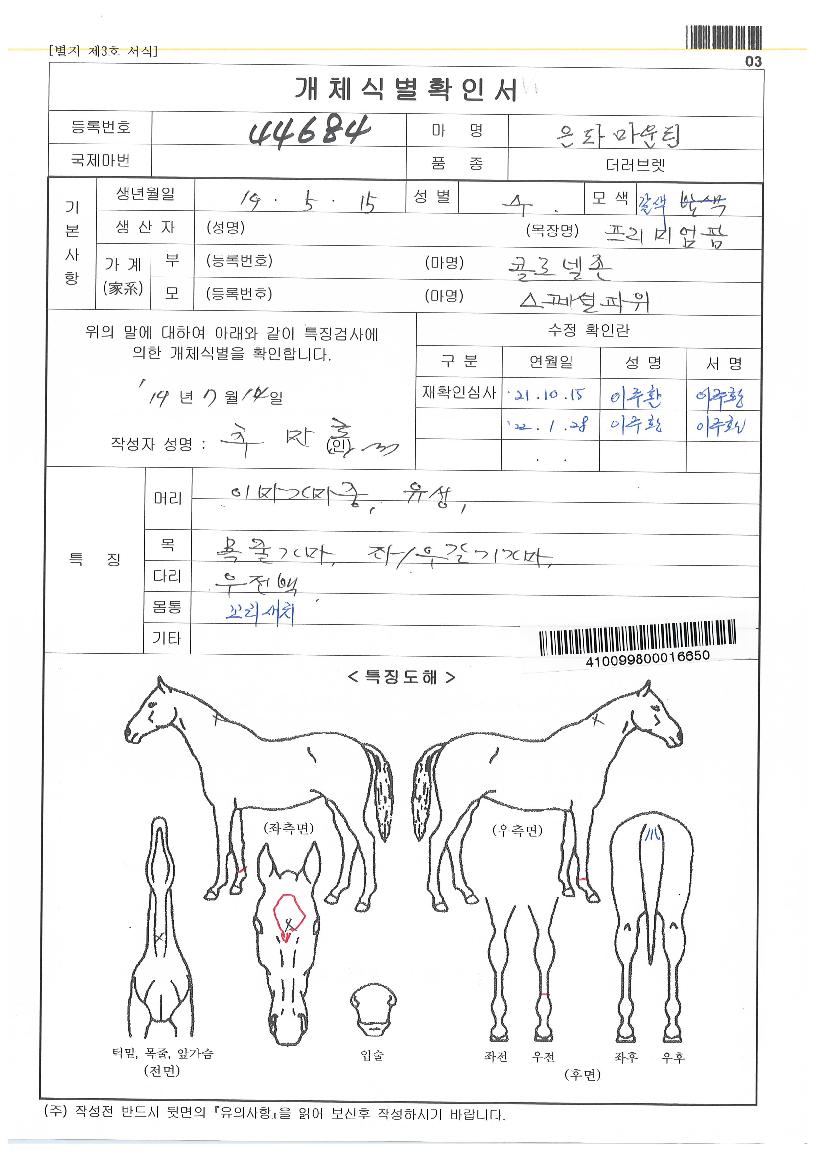 [별지 제3호 서식]
03
개체식별확인서
등록번호 44684 마 명 은파마운틴
국제마번 품 종 더러브렛
기본사항
생년월일 19 . 5 . 15 성별 수 . 모색 갈색
생산자 (성명) (목장명) 프리미엄팜
가계(家系) 부 (등록번호) (마명) 콜로넬존
모 (등록번호) (마명) 스페셜파워
위의 말에 대하여 아래와 같이 특징검사에
의한 개체식별을 확인합니다.
'19 년 7 월 14 일
작성자 성명 : (인)
수정 확인란
구 분 연월일 성 명 서 명
재확인심사 '21.10.15 이주환 이주환
'22.1.28 이주환 이주환
. .
특 징
머리 이마가마중, 유성,
목 목줄가마, 좌/우갈기가마,
다리 우전백
몸통 꼬리새치
기타
410099800016650
< 특징도해 >
(좌측면) (우측면)
턱밑, 목줄, 앞가슴
(전면)
입술
좌전 우전 좌후 우후
(후면)
(주) 작성전 반드시 뒷면의 『유의사항』을 읽어 보신후 작성하시기 바랍니다.